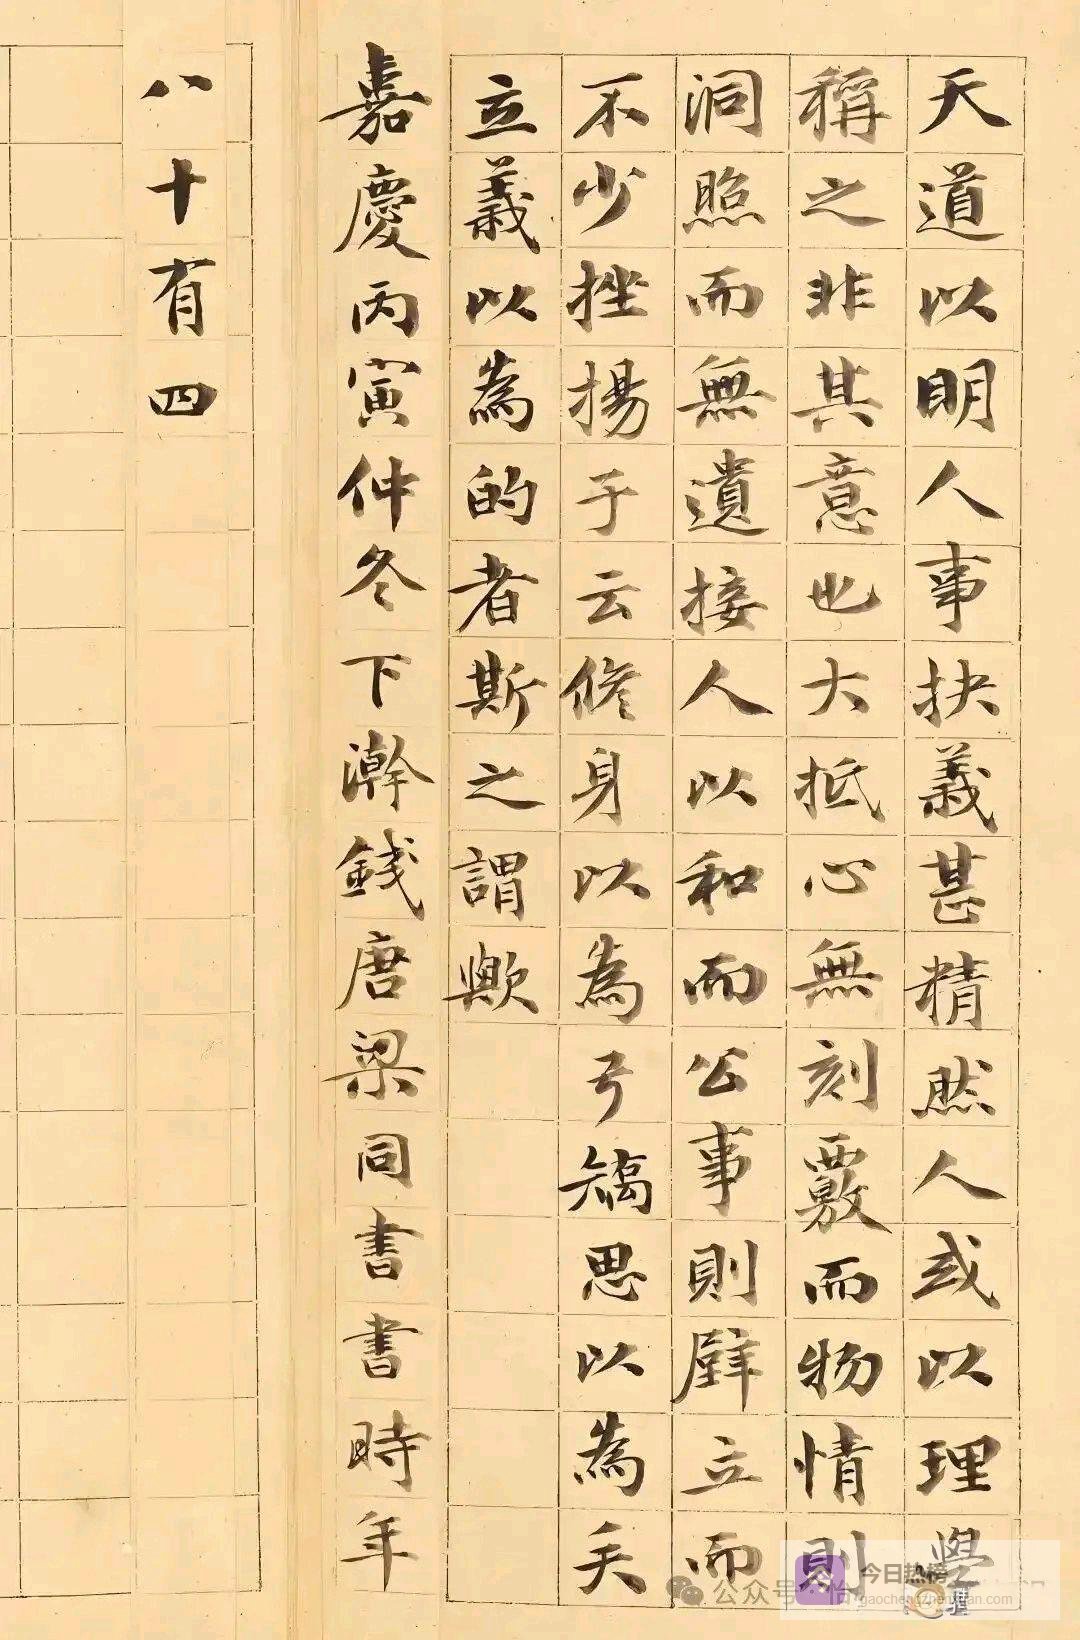 天道以明人事抉義甚精然人或以理學
稱之非其意也大抵心無刻覈而物情則
洞照而無遺接人以和而公事則壁立而
不少挫揚子云修身以為弓矯思以為矢
立義以為的者斯之謂歟
嘉慶丙寅仲冬下澣錢唐梁同書書時年
八十有四
公众号
今日热榜
gaochengzhenxuan.com